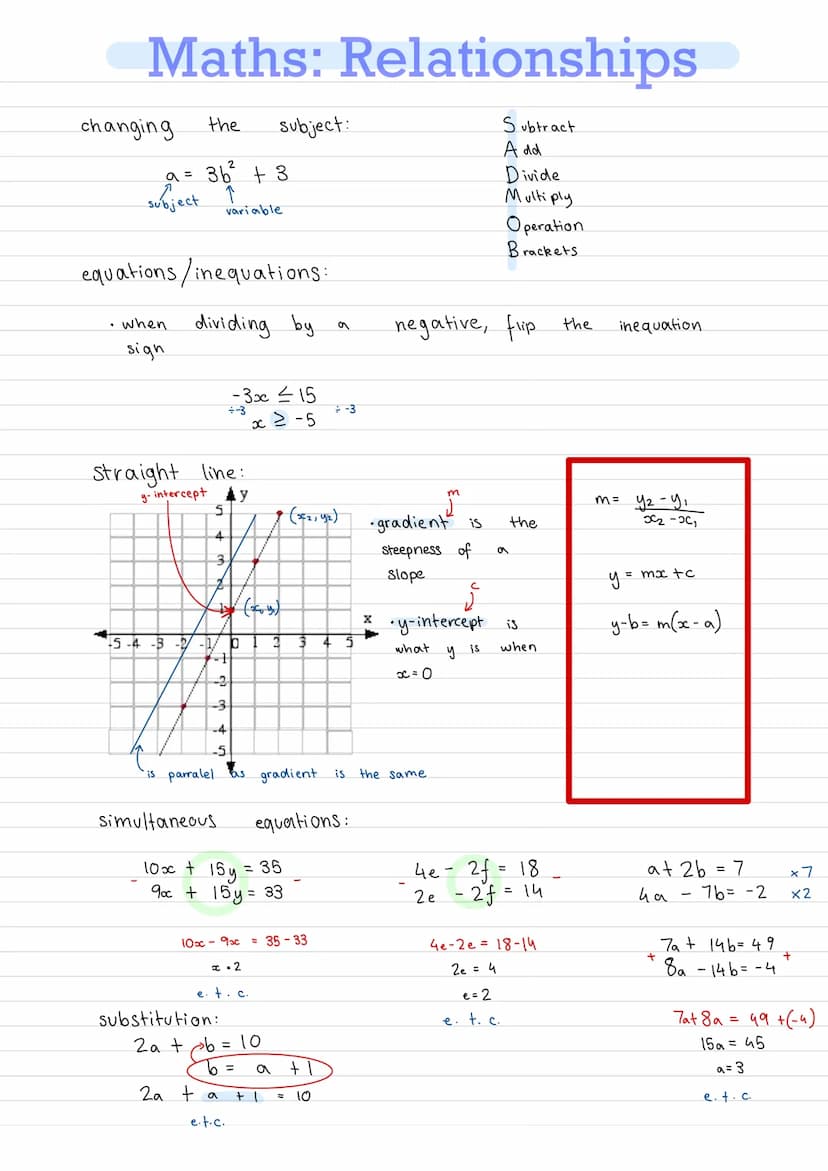 Maths: Relationships
changing the subject:
a = 3b² + 3
subject
variable
Subtract
Add
Divide
Multiply
Operation
Brackets
equations/inequations:
· when dividing by a negative, flip the inequation
sign
-3x ≤ 15
÷-3 ÷-3
x ≥ -5
straight line:
y-intercept
y
x
5
4
3
2
1
-5 -4 -3 -2 -1 0 1 2 3 4 5
-1
-2
-3
-4
-5
(x₂, y₂)
(x₁, y₁)
is parralel as gradient is the same
m
· gradient is the
steepness of a
slope
c
· y-intercept is
what y is when
x = 0
m = y₂ - y₁
x₂ - x₁
y = mx + c
y-b = m(x - a)
simultaneous equations:
10x + 15y = 35
- -
9x + 15y = 33
10x - 9x = 35 - 33
x = 2
e.t.c.
4e - 2f = 18
- -
2e - 2f = 14
4e - 2e = 18 - 14
2e = 4
e = 2
e.t.c.
a + 2b = 7 ×7
4a - 7b = -2 ×2
7a + 14b = 49
+ +
8a - 14b = -4
7a + 8a = 49 + (-4)
15a = 45
a = 3
e.t.c.
substitution:
2a + b = 10
b = a + 1
2a + a + 1 = 10
e.t.c.